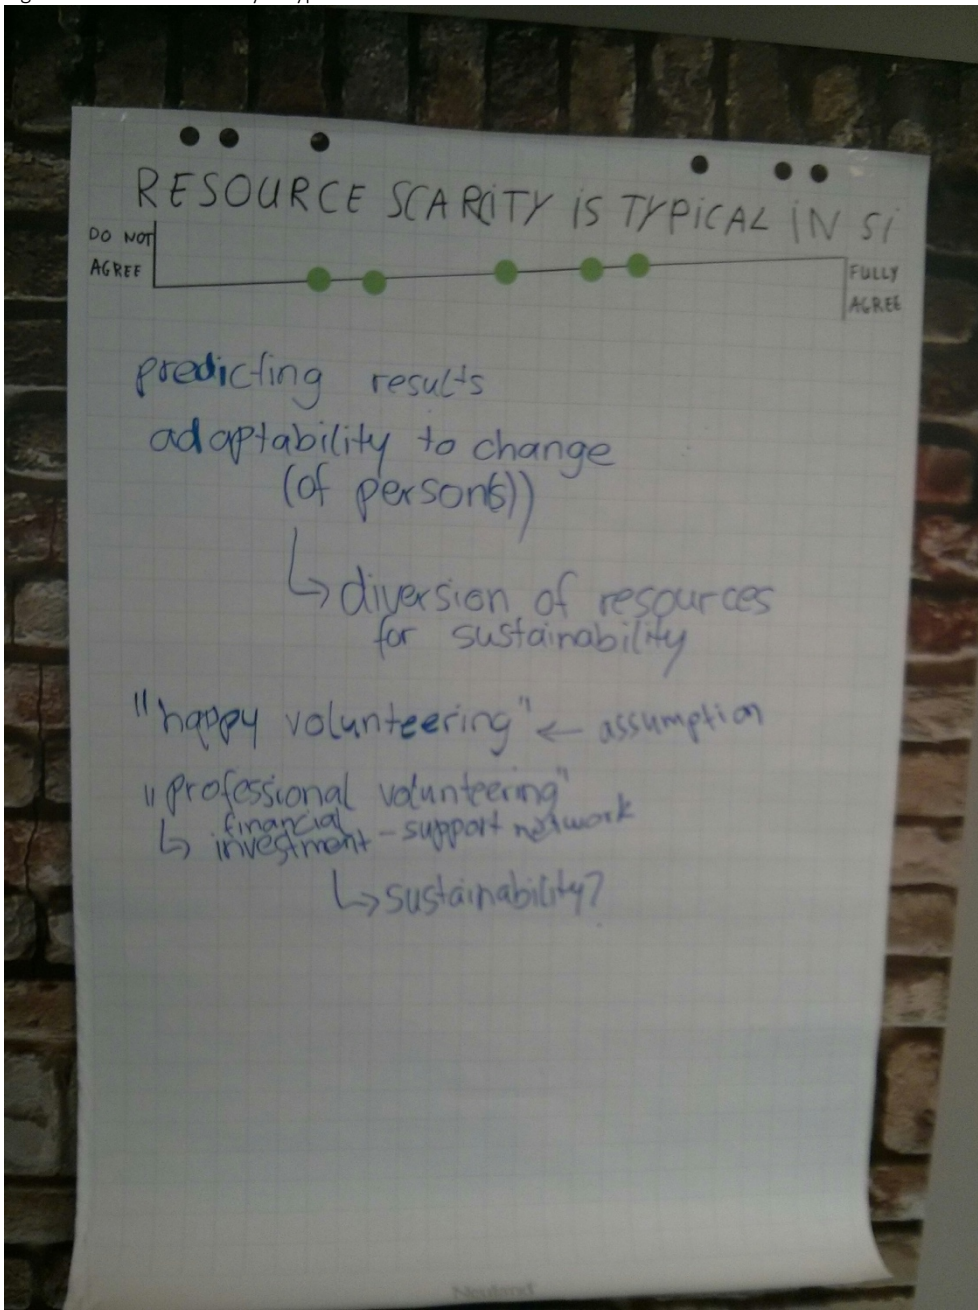 RESOURCE SCARCITY iS TYPiCAL iN Si
DO NOT
AGREE
FULLY
AGREE
predicting results
adaptability to change
(of person(s))
↳ diversion of resources
for sustainability
"happy volunteering" ← assumption
"professional volunteering"
↳ financial
investment - support network
↳ sustainability?
Neuland